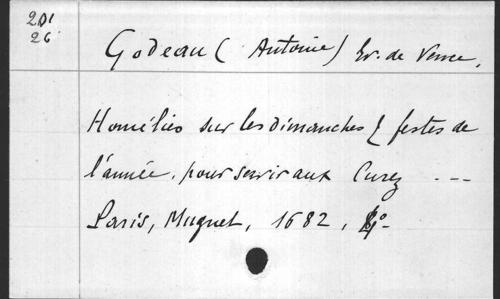 201
26
Godeau (Antoine) Ev. de Vence.
Homélies sur les dimanches & festes de
l'année, pour servir aux Curez ---
Paris, Muguet, 1682, 4°-